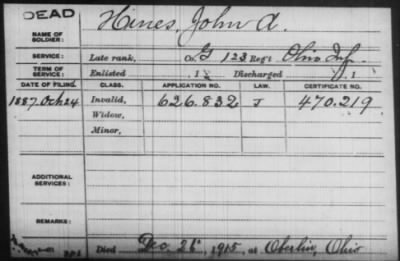 DEAD
NAME OF SOLDIER: Hines, John A.
SERVICE: Late rank, Co. G 123 Reg't Ohio Inf.
TERM OF SERVICE: Enlisted 1 Discharged 1
DATE OF FILING. CLASS. APPLICATION NO. LAW. CERTIFICATE NO.
1887 Oct 24 Invalid, 626.832 J 470.219
Widow,
Minor,
ADDITIONAL SERVICES:
REMARKS:
Died Dec. 26, 1915, at Oberlin, Ohio